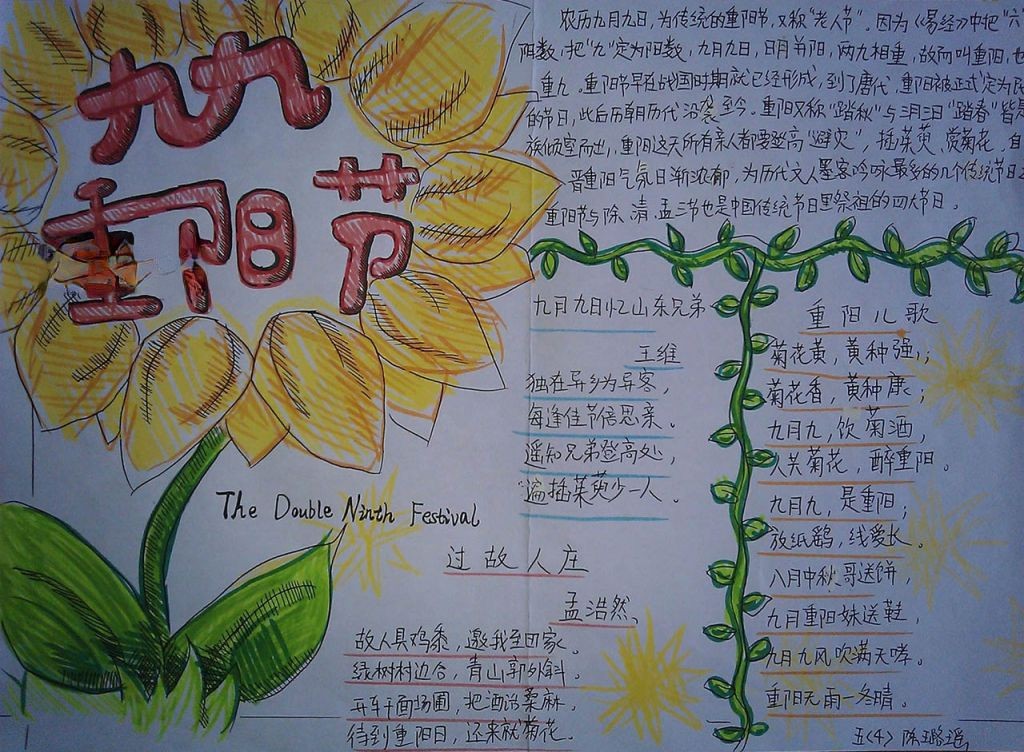 九九
重阳节
农历九月九日,为传统的重阳节,又称“老人节”。因为《易经》中把“六
阴数,把“九”定为阳数,九月九日,日月并阳,两九相重,故而叫重阳,也
重九。重阳节早在战国时期就已经形成,到了唐代,重阳被正式定为民
的节日,此后历朝历代沿袭至今。重阳又称“踏秋”与三月三日“踏春”皆是
族倾室而出,重阳这天所有亲人都要登高“避灾”,插茱萸、赏菊花。自
晋重阳气氛日渐浓郁,为历代文人墨客吟咏最多的几个传统节日之
重阳节与除、清、盂三节也是中国传统节日里祭祖的四大节日。
九月九日忆山东兄弟
王维
独在异乡为异客,
每逢佳节倍思亲。
遥知兄弟登高处,
遍插茱萸少一人。
重阳儿歌
菊花黄,黄种强;
菊花香,黄种康;
九月九,饮菊酒,
人共菊花,醉重阳。
九月九,是重阳;
放纸鹞,线爱长。
八月中秋哥送饼,
九月重阳妹送鞋,
九月九风吹满天哮。
重阳无雨一冬晴。
The Double Ninth Festival
过故人庄
孟浩然、
故人具鸡黍,邀我至田家。
绿树村边合,青山郭外斜。
开车干面场圃,把酒话桑麻,
待到重阳日,还来就菊花。
五(4) 陈璐瑶